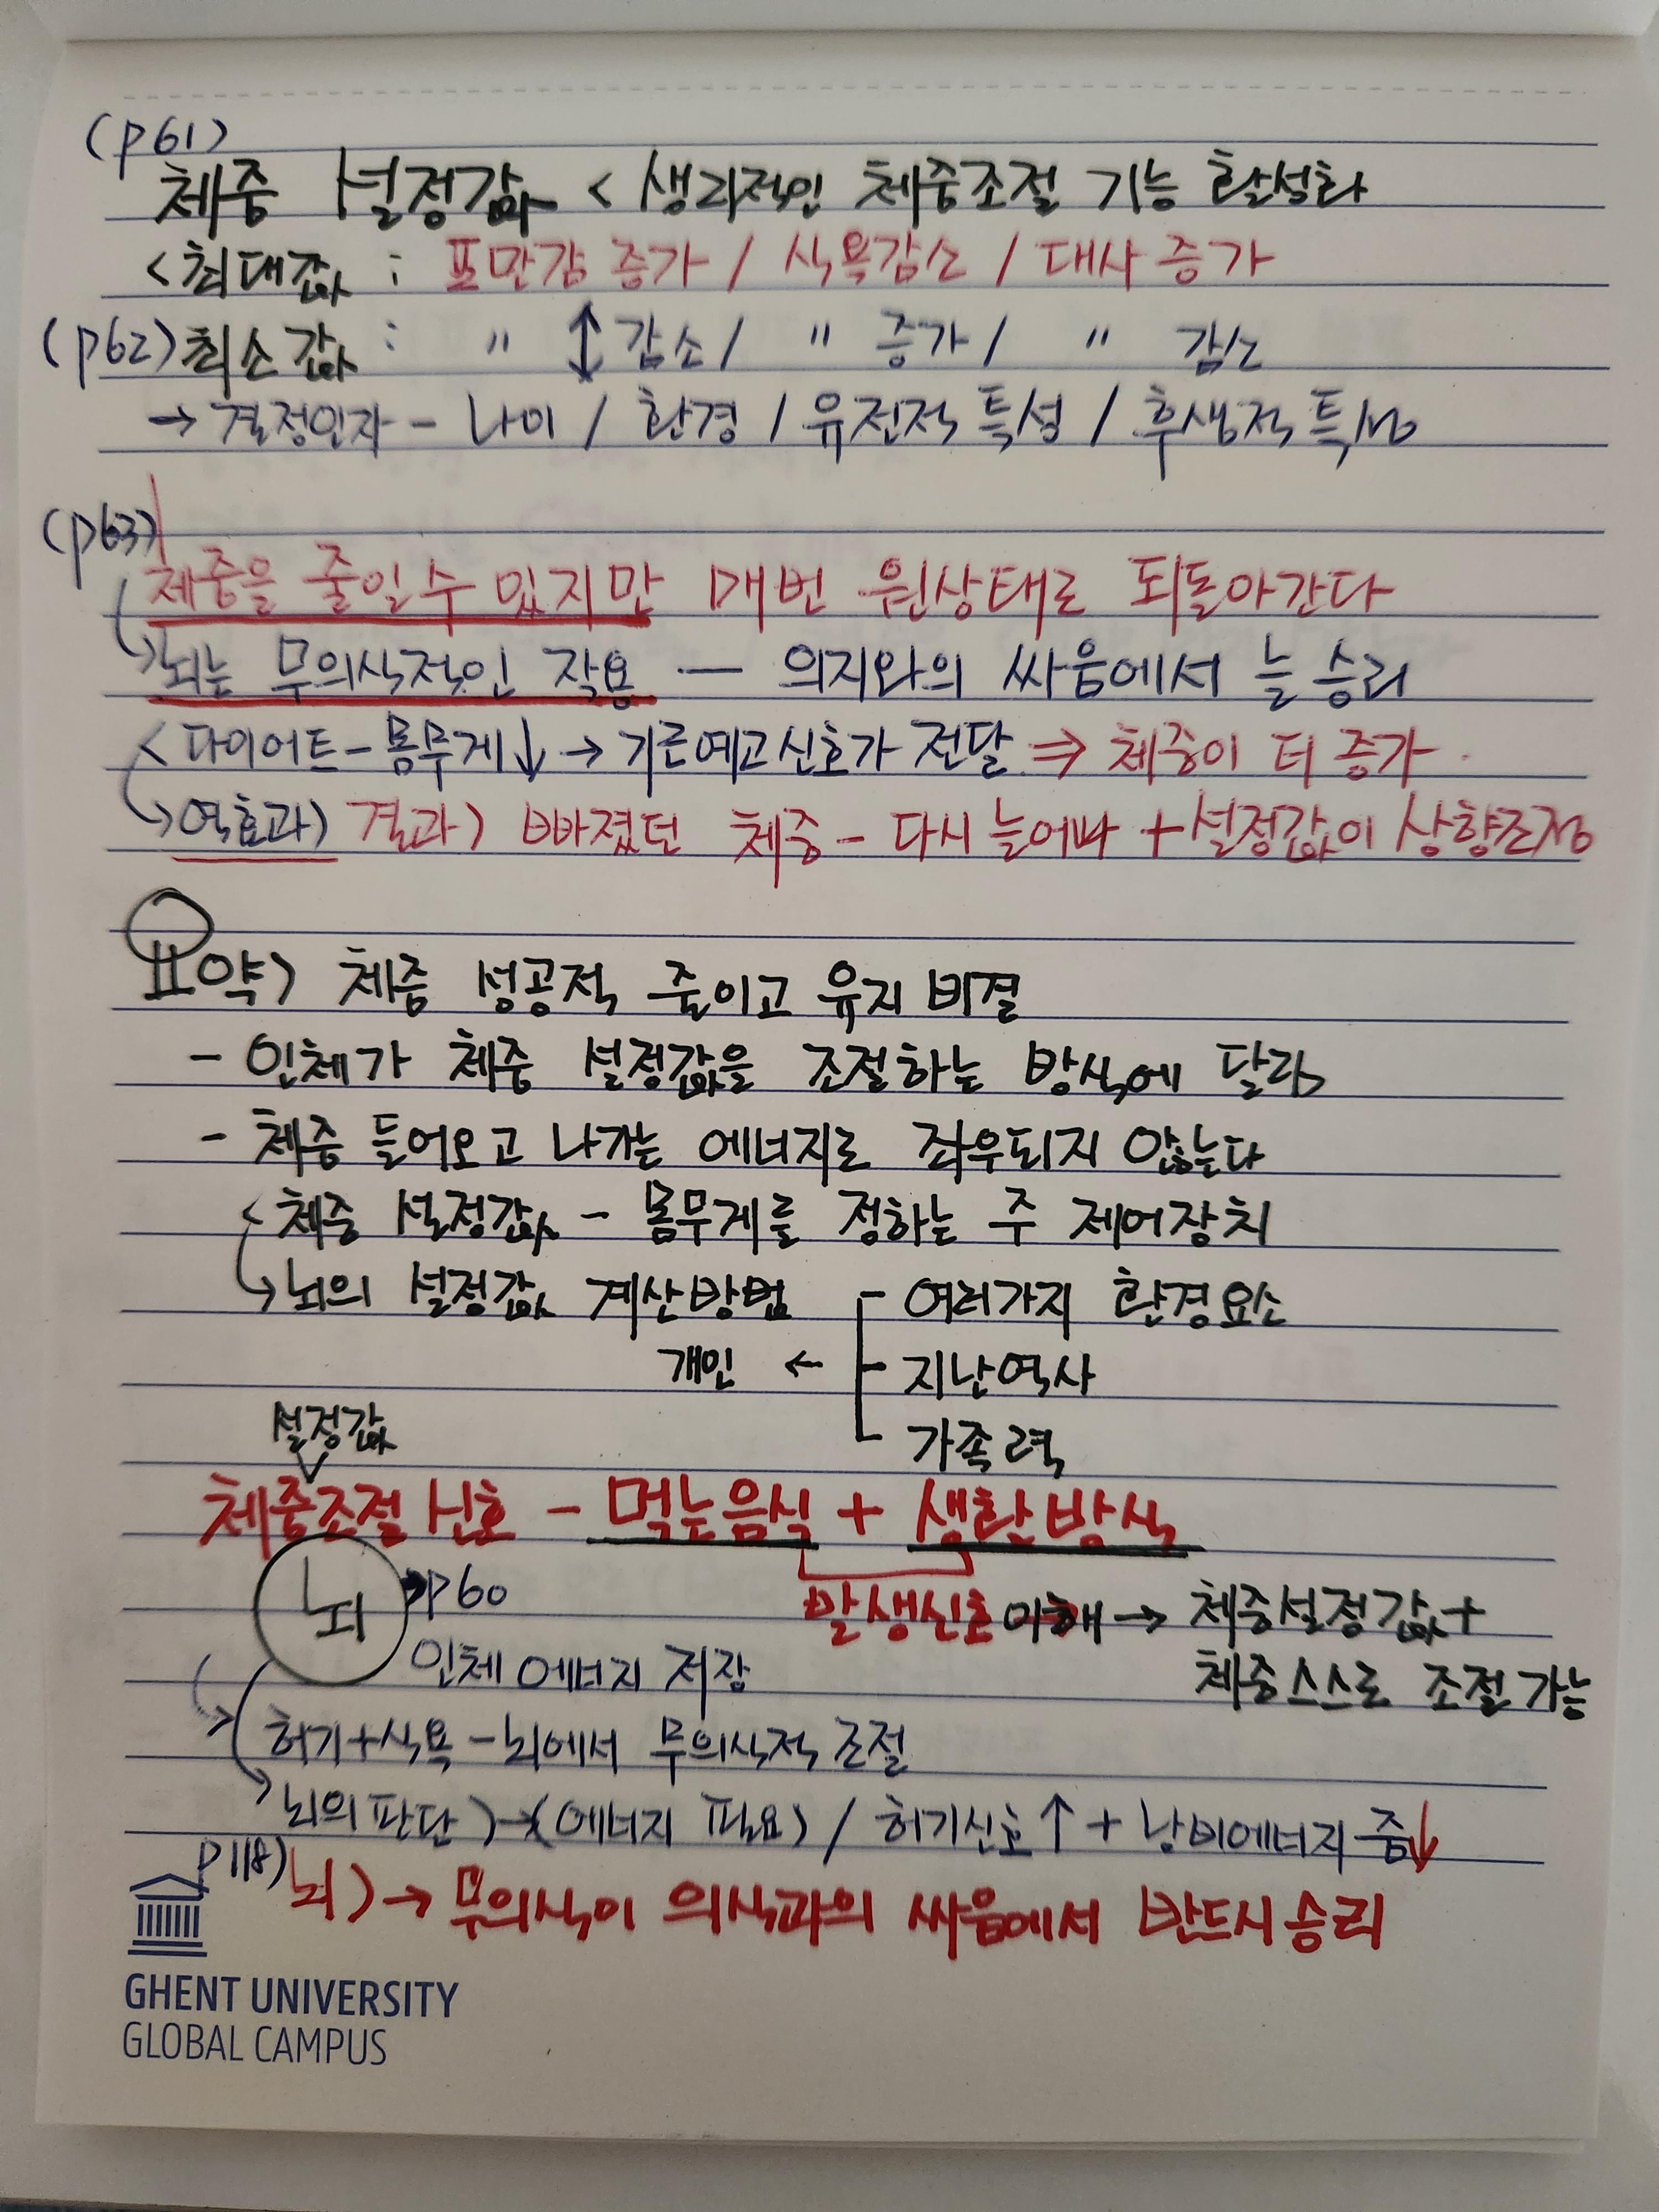 (p61)
체중 설정값 < 생리적인 체중조절 기능 활성화
<최대값 : 포만감 증가 / 식욕감소 / 대사 증가
(p62) 최소값 : " ↕ 감소 / " 증가 / " 감소
→ 결정인자 - 나이 / 환경 / 유전적 특성 / 후생적 특성
(p63)
체중을 줄일수 있지만 매번 원상태로 되돌아간다
↳뇌는 무의식적인 작용 — 의지와의 싸움에서 늘 승리
<다이어트-몸무게↓ → 기근예고신호가 전달 ⇒ 체중이 더 증가.
↳역효과) 결과) 빠졌던 체중 - 다시 늘어 + 설정값이 상향조정
요약> 체중 성공적 줄이고 유지 비결
- 인체가 체중 설정값을 조절하는 방식에 달라
- 체중 들어오고 나가는 에너지로 좌우되지 않는다
< 체중 설정값 - 몸무게를 정하는 주 제어장치
↳뇌의 설정값 계산방법 - 여러가지 환경요소
개인 ← - 지난역사
- 가족력
설정값
체중조절 신호 - 먹는음식 + 생활방식
뇌 p60
발생신호 이해 → 체중설정값 +
인체 에너지 저장
체중스스로 조절가능
→ 허기+식욕 - 뇌에서 무의식적 조절
→ 뇌의 판단 ) → (에너지 필요) / 허기신호↑ + 낭비에너지 줌↓
p118) 뇌 ) → 무의식이 의식과의 싸움에서 반드시 승리
GHENT UNIVERSITY
GLOBAL CAMPUS